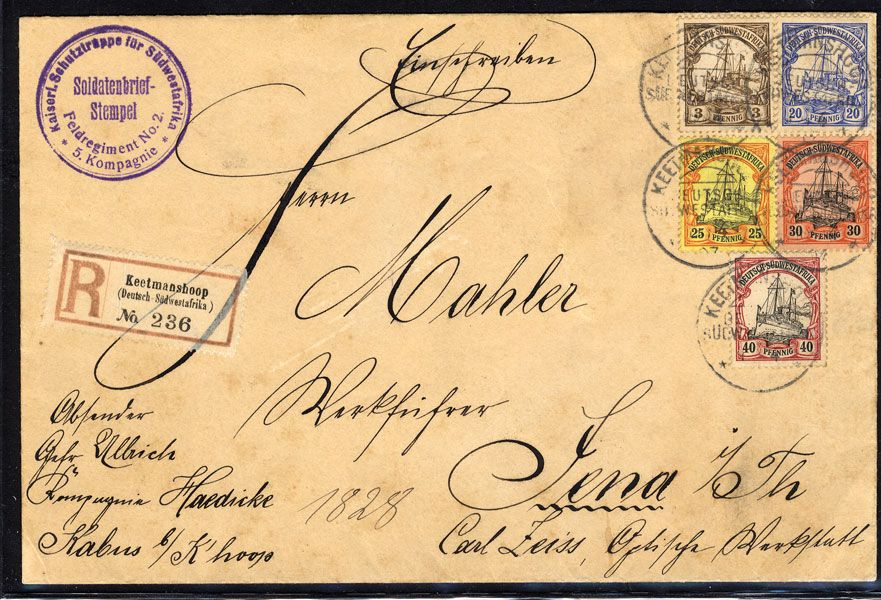 Kaiserl. Schutztruppe für Südwestafrika
Soldatenbrief-
Stempel
Feldregiment No. 2.
* 5. Kompagnie *
Einschreiben
DEUTSCH-SÜDWESTAFRIKA
3 3
PFENNIG
DEUTSCH-SÜDWESTAFRIKA
20 20
PFENNIG
DEUTSCH-SÜDWESTAFRIKA
25 25
PFENNIG
DEUTSCH-SÜDWESTAFRIKA
30 30
PFENNIG
DEUTSCH-SÜDWESTAFRIKA
40 40
PFENNIG
Herrn
Mahler
Werkführer
Jena i/Th
Carl Zeiss, Optische Werkstatt
R
Keetmanshoop
(Deutsch-Südwestafrika)
No 236
Absender
Gefr Ullrich
Kompagnie Haedicke
Kabus b/K'hoop
1828